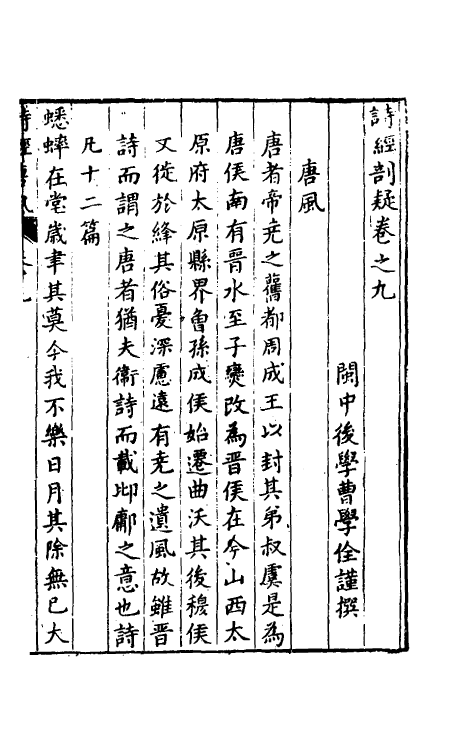 詩經剖疑卷之九
閩中後學曹學佺謹撰
唐風
唐者帝堯之舊都周成王以封其弟叔虞是為
唐侯南有晉水至子燮改為晉侯在今山西太
原府太原縣界曾孫成侯始遷曲沃其後穆侯
又徙於絳其俗憂深慮遠有堯之遺風故雖晉
詩而謂之唐者猶夫衞詩而載邶鄘之意也詩
凡十二篇
蟋蟀在堂歲聿其莫今我不樂日月其除無已大